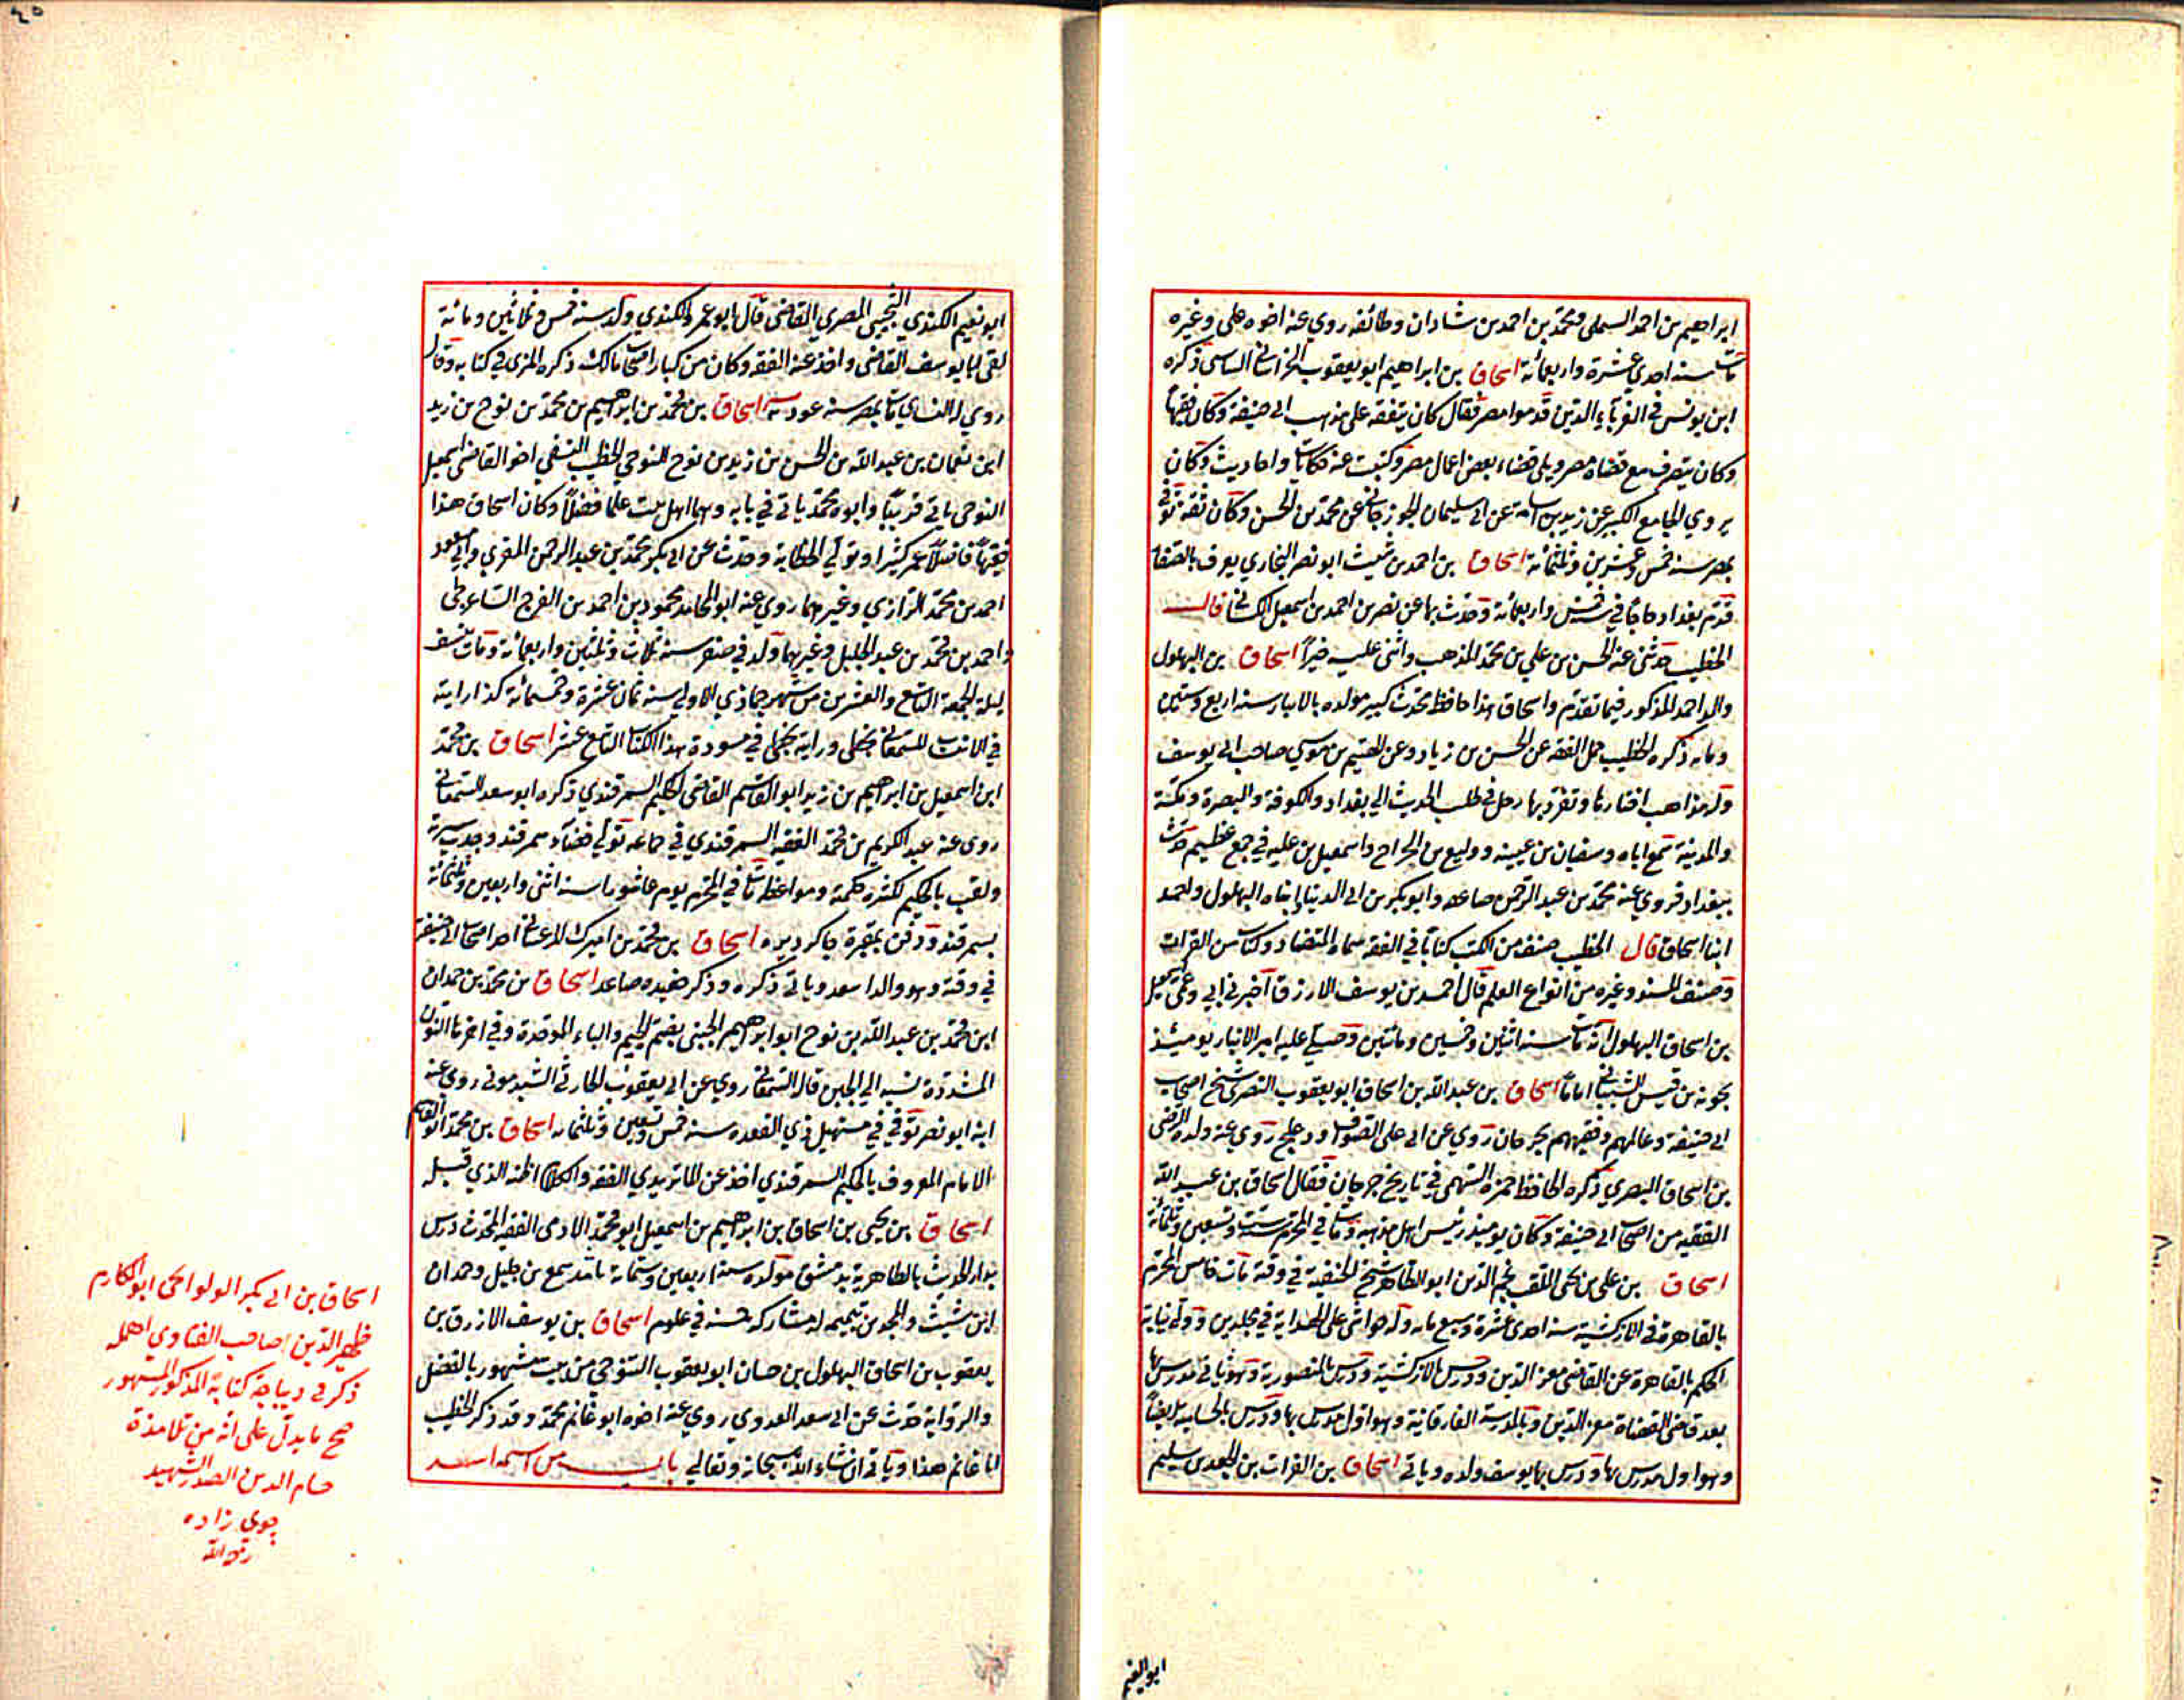 ابراهيم بن احمد السملى ومحمد بن احمد بن شاذان وطائفه روي عنه اخوه على وغيره
مات سنه احدي عشرة واربعمائة اسحاق بن ابراهيم ابو يعقوب الخراسانى الساسى ذكره
ابن يونس في الغرباء الذين قدموا مصر فقال كان يتفقه على مذهب ابى حنيفة وكان فقيها
وكان يتصرف مع قضاة مصر ويلى قضاء بعض اعمال مصر وكتبت عنه حكايات واحاديث وكان
يروي الجامع الكبير عن زيد بن اسامة عن ابى سليمان الجوزجانى عن محمد بن الحسن وكان ثقة توفى
بمصر سنه خمس وعشرين وثلثمائة اسحاق بن احمد بن شيث ابو نصر البخاري يعرف بالصفار
قدم بغداد حاجا في سنة خمس واربعمائة وحدث بها عن نصر بن احمد بن اسمعيل الكسانى قال
الخطيب حدثنى عنه الحسن بن على بن محمد المذهب واثنى عليه خيراً اسحاق بن البهلول
والد احمد المذكور فيما تقدم واسحاق هذا حافظ محدث كبير مولده بالانبار سنه اربع وستين
ومايه ذكره الخطيب حمل الفقه عن الحسن بن زياد وعن الهيثم بن موسي صاحب ابى يوسف
وله مذاهب اختارها وتفرد بها رحل في طلب الحديث الى بغداد والكوفة والبصرة ومكة
والمدينة سمع اباه وسفيان بن عيينه ووكيع بن الجراح واسمعيل بن عليه في جمع عظيم حدث
ببغداد فروي عنه محمد بن عبد الرحمن صاعقه وابو بكر بن ابى الدنيا وابناه البهلول واحمد
ابنا اسحاق قال الخطيب صنف من الكتب كتاباً في الفقه سماه المتضاد وكتاب من القرات
وصنف المسند وغيره من انواع العلم قال احمد بن يوسف الازرق اخبرنى ابى وعمى اسمعيل
بن اسحاق البهلول انه مات سنه اثنين وخمسين ومائتين وصلى عليه امير الانبار يومئذ
بحونه بن قيس الشيبانى اماماً اسحاق بن عبد الله بن اسحاق ابو يعقوب النصرى شيخ اصحاب
ابى حنيفة وعالمهم وفقيههم بجرجان روي عن ابى على الصواف ودعلج روي عنه ولده الرضى
بن اسحاق البصري ذكره الحافظ حمزة السهمى في تاريخ جرجان فقال اسحاق بن عبيد الله
الفقيه من اصحاب ابى حنيفة وكان يوميذ رئيس اهل مذهبه ومات في المحرم ست وتسعين وثلثمائة
اسحاق بن على بن يحى الملقب نجم الدين ابو الطاهر شيخ الحنفية في وقته مات خامس المحرم
بالقاهرة في الازكشية سنه احدى عشرة وسبع مايه وله حواشى على الهداية في مجلدين وولى نيابة
الحكم بالقاهرة عن القاضى معز الدين ودرس بالازكشية ودرس بالمنصورية وهو ثانى مدرسيها
بعد قاضى القضاة معز الدين وبالمدرسة الفارقانية وهو اول مدرس بها ودرس بالحساميه ايضاً
وهو اول مدرس بها ودرس بها يوسف ولده وياتى اسحاق بن الفرات بن الجعد بن سليم
ابو نعيم
ابو نعيم الكندي التجيبى المصري القاضى قال ابو عمر والكندي ولد سنه خمس وثمانين ومائة
لقى ابا يوسف القاضى واخذ عنه الفقه وكان من كبار اصحاب مالك ذكره المزى في كتابه وقال
روي له النساى مات بمصر سنه اسحاق بن محمد بن ابراهيم بن محمد بن نوح بن زيد
ابن نعمان بن عبد الله بن الحسن بن زيد بن نوح النوحى الخطيب النسفى اخو القاضى اسمعيل
النوحى ياتى قريباً وابوه محمد ياتى في بابه وهما اهل بيت علما فضلاً وكان اسحاق هذا
فقيهاً فاضلاً عمر كثيرا وتولى الخطابة وحدث عن ابى بكر محمد بن عبد الرحمن المقري وابى مسعود
احمد بن محمد الرازي وغيرهما روي عنه ابو المحامد محمود بن احمد بن الفرج الساغرجى
واحمد بن محمد بن عبد الجليل وغيرهما ولد في صفر سنه ثلاث وثلثين واربعمائة ومات بنسف
ليلة الجمعة التاسع والعشرين من شهر جمادي الاولى سنه ثمان عشرة وخمسمائة كذا رايته
في الانساب للسمعانى بخطى ورايته بخطى في مسودة هذا الكتاب التاسع عشر اسحاق بن محمد
ابن اسمعيل بن ابراهيم بن زيد ابو القاسم القاضى الحكيم السمرقندي ذكره ابو سعد السمعانى
روى عنه عبد الكريم بن محمد الفقيه السمرقندي في جماعه تولى قضاء سمرقند وحمدت سيرته
ولقب بالحكيم لكثرة حكمته ومواعظه مات في المحرم يوم عاشورا سنه اثنى واربعين وثلثمائة
بسمرقند ودفن بمقبرة جاكرديزه اسحاق بن محمد بن اميرك احد اصحاب ابى حنيفة
في وقته وهو والد اسعد وياتى ذكره وذكر حفيده صاعد اسحاق بن محمد بن حمدان
ابن محمد بن عبد الله بن نوح ابو ابراهيم الجبنى بضم الجيم والباء الموحدة وفي اخرها النون
المشددة نسبه الى الجبن قال السمعانى روي عن ابى يعقوب الحارثى السبدمونى روى عنه
ابنه ابو نصر توفى في مستهل ذي القعده سنه خمس وتسعين وثلثمايه اسحاق بن محمد ابو القاسم
الامام المعروف بالحكيم السمرقندي اخذ عن الماتريدي الفقه والكلام اظنه الذي قبله
اسحاق بن يحى بن اسحاق بن ابراهيم بن اسمعيل ابو محمد الامدى الفقيه المحدث درس
بدار الحديث بالظاهرية بدمشق مولده سنه اربعين وستمائة سمع من خليل وحمدان
ابن شيث والمجد بن تيميه له مشاركه حسنه في علوم اسحاق بن يوسف الازرق بن
يعقوب بن اسحاق البهلول بن حسان ابو يعقوب التنوخى من بيت مشهور بالفضل
والرواية حدث عن ابى سعد العدوى روي عنه اخوه ابو غانم محمد وقد ذكر الخطيب
ابا غانم هذا وياتى ان شاء الله سبحانه وتعالى باب من اسمه اسعد
اسحاق بن ابى بكر الولوالجى ابو المكارم
ظهير الدين صاحب الفتاوي اهمله
ذكر في ديباجة كتابة المذكور المشهور
صح ما يدل على انه من تلامذة
حسام الدين الصدر الشهيد
جوي زاده
رحمه الله